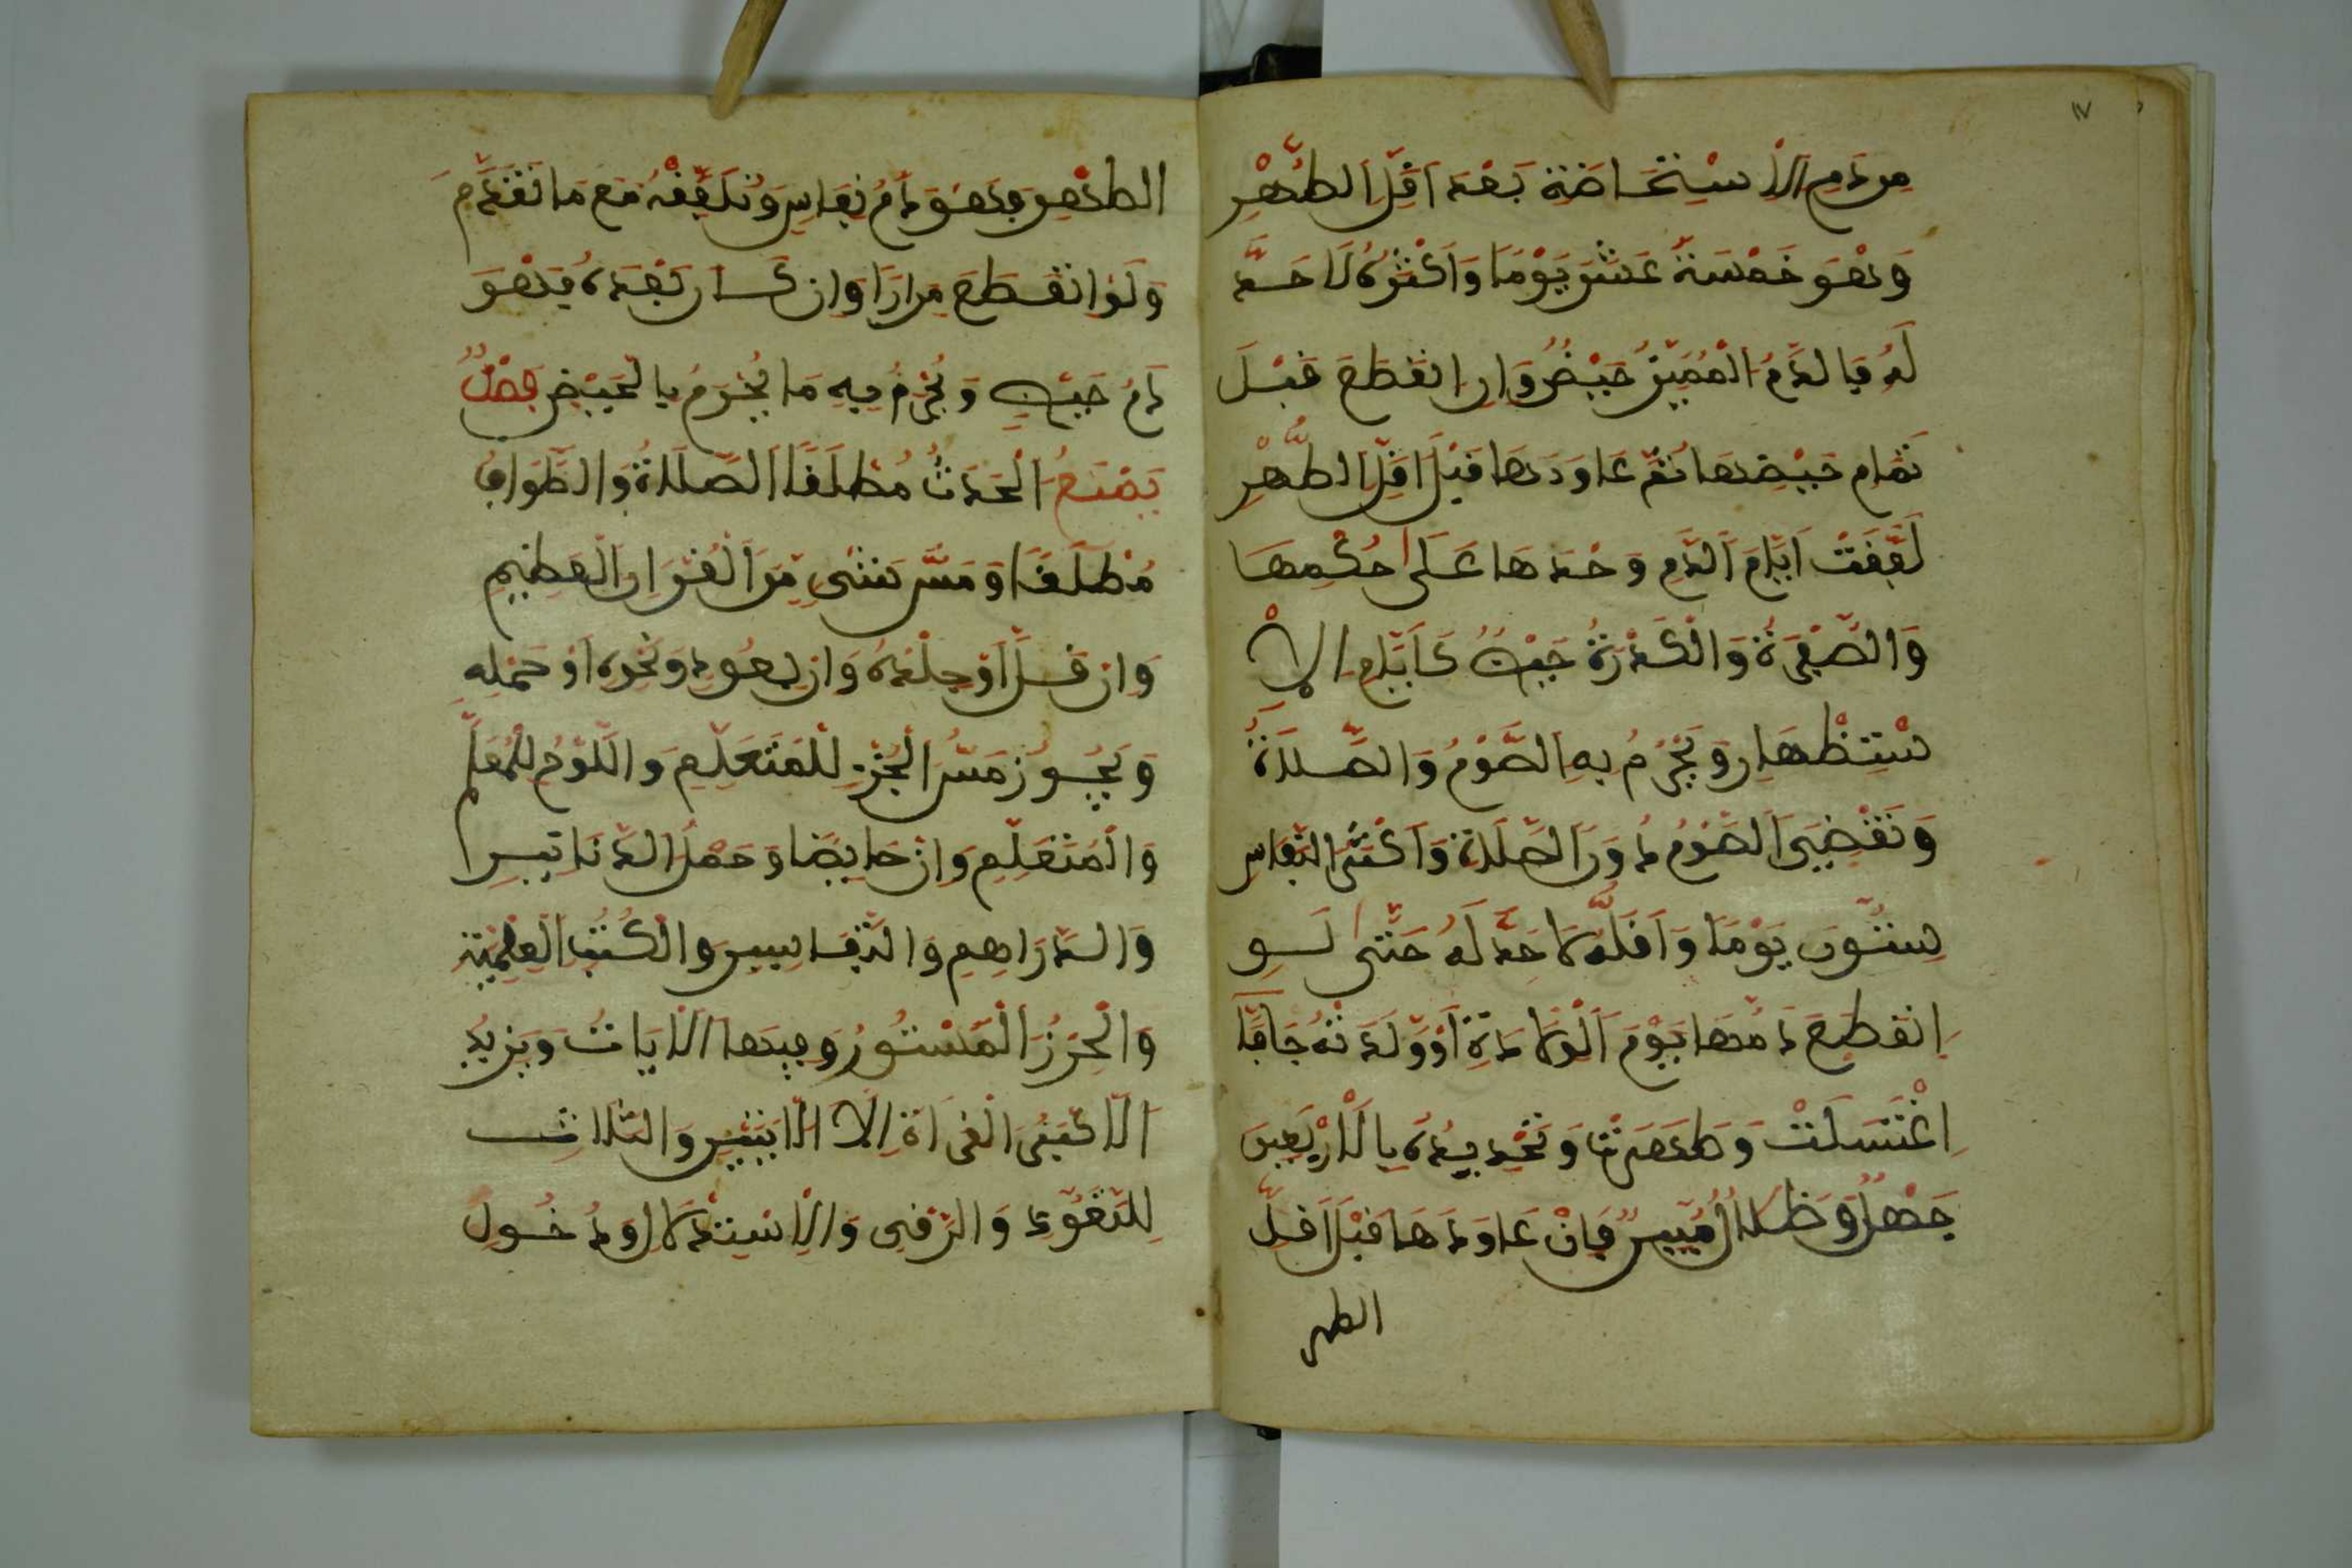 ١٧
مِن دَمِ الْاِسْتِحَاضَةِ بَعْدَ اَقَلِّ الطُّهْرِ
وَهُوَ خَمْسَةَ عَشَرَ يَوْمًا وَاَكْثَرُهُ لَا حَدَّ
لَهُ فَالدَّمُ الْمُمَيَّزُ حَيْضٌ وَاِنِ انْقَطَعَ قَبْلَ
تَمَامِ حَيْضِهَا ثُمَّ عَاوَدَهَا قَبْلَ اَقَلِّ الطُّهْرِ
لَفَّقَتْ اَيَّامَ الدَّمِ وَحْدَهَا عَلَى حُكْمِهَا
وَالصُّفْرَةُ وَالْكَدَرَةُ حَيْضٌ كَاَيَّامِ الاِ
سْتِظْهَارِ وَيَحْرُمُ بِهِ الصَّوْمُ وَالصَّلَاةُ
وَتَقْضِي الصَّوْمَ دُونَ الصَّلَاةِ وَاَكْثَرُ النِّفَاسِ
سِتُّونَ يَوْمًا وَاَقَلُّهُ لَا حَدَّ لَهُ حَتَّى لَوِ
انْقَطَعَ دَمُهَا يَوْمَ الْوِلَادَةِ اَوْ وَلَدَتْهُ جَافًّا
اغْتَسَلَتْ وَطَهُرَتْ وَتَحْدِيدُهُ بِالْاَرْبَعِينَ
جَهْلٌ وَضَلَالٌ مُبِينٌ فَاِنْ عَاوَدَهَا قَبْلَ اَقَلِّ
الطهر
الطُّهْرِ فَهُوَ دَمُ نِفَاسٍ وَتُلَفِّقُهُ مَعَ مَا تَقَدَّمَ
وَلَوِ انْقَطَعَ مِرَارًا وَاِنْ كَانَ بَعْدَهُ فَهُوَ
دَمُ حَيْضٍ وَيَحْرُمُ فِيهِ مَا يَحْرُمُ بِالْحَيْضِ فَصْلٌ
يَمْنَعُ الْحَدَثُ مُطْلَقًا الصَّلَاةَ وَالطَّوَافَ
مُطْلَقًا وَمَسَّ شَيْءٍ مِنَ الْقُرْاٰنِ الْعَظِيمِ
وَاِنْ قَلَّ اَوْ جِلْدَهُ وَاِنْ بِعُودٍ وَنَحْوِهِ اَوْ حَمْلِهِ
وَيَجُوزُ مَسُّ الْجُزْءِ لِلْمُتَعَلِّمِ وَاللَّوْحِ لِلْمُعَلِّمِ
وَالْمُتَعَلِّمِ وَاِنْ حَائِضًا وَحَمْلُ الدَّنَانِيرِ
وَالدَّرَاهِمِ وَالتَّفَاسِيرِ وَالْكُتُبِ الْعِلْمِيَّةِ
وَالْحِرْزِ الْمَسْتُورِ وَفِيهَا الْاٰيَاتُ وَيَزِيدُ
الْاَكْبَرُ الْقِرَاءَةَ اِلَّا الْاٰيَتَيْنِ وَالثَّلَاثَ
لِلتَّعَوُّذِ وَالرَّقْيِ وَالْاِسْتِدْلَالِ وَدُخُولَ